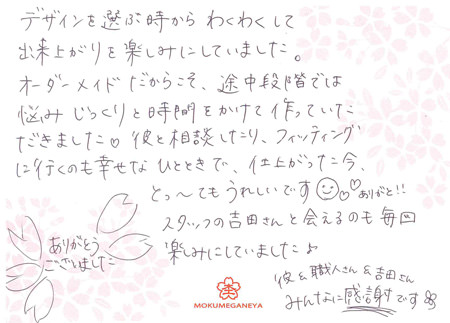 デザインを選ぶ時から わくわくして
出来上がりを楽しみにしていました。
オーダーメイドだからこそ、途中段階では
悩み じっくりと時間をかけて作っていた
だきました♡ 彼と相談したり、フィッティング
に行くのも幸せな ひとときで、仕上がった今、
とっ〜てもうれしいです☺♡♡ ありがと!!
スタッフの吉田さんと会えるのも毎回
楽しみにしていました♪
ありがとう
ございました
彼&職人さん&吉田さん
みんなに感謝です
MOKUMEGANEYA